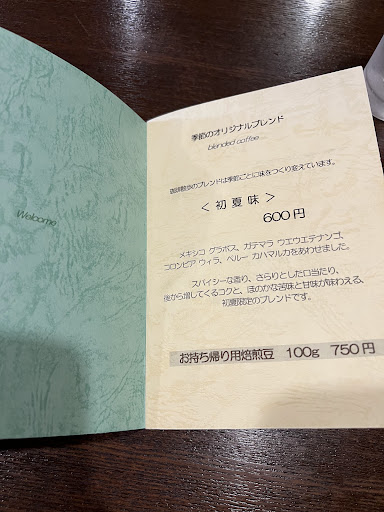 Welcome
季節のオリジナルブレンド
blended coffee
珈琲散歩のブレンドは季節ごとに味をつくり変えています。
＜初夏味＞
600円
メキシコ グラポス、ガテマラ ウエウエテナンゴ、
コロンビア ウィラ、ペルー カハマルカをあわせました。
スパイシーな香り、さらりとした口当たり、
後から増してくるコクと、ほのかな苦味と甘味が味わえる、
初夏限定のブレンドです。
お持ち帰り用焙煎豆 100g 750円